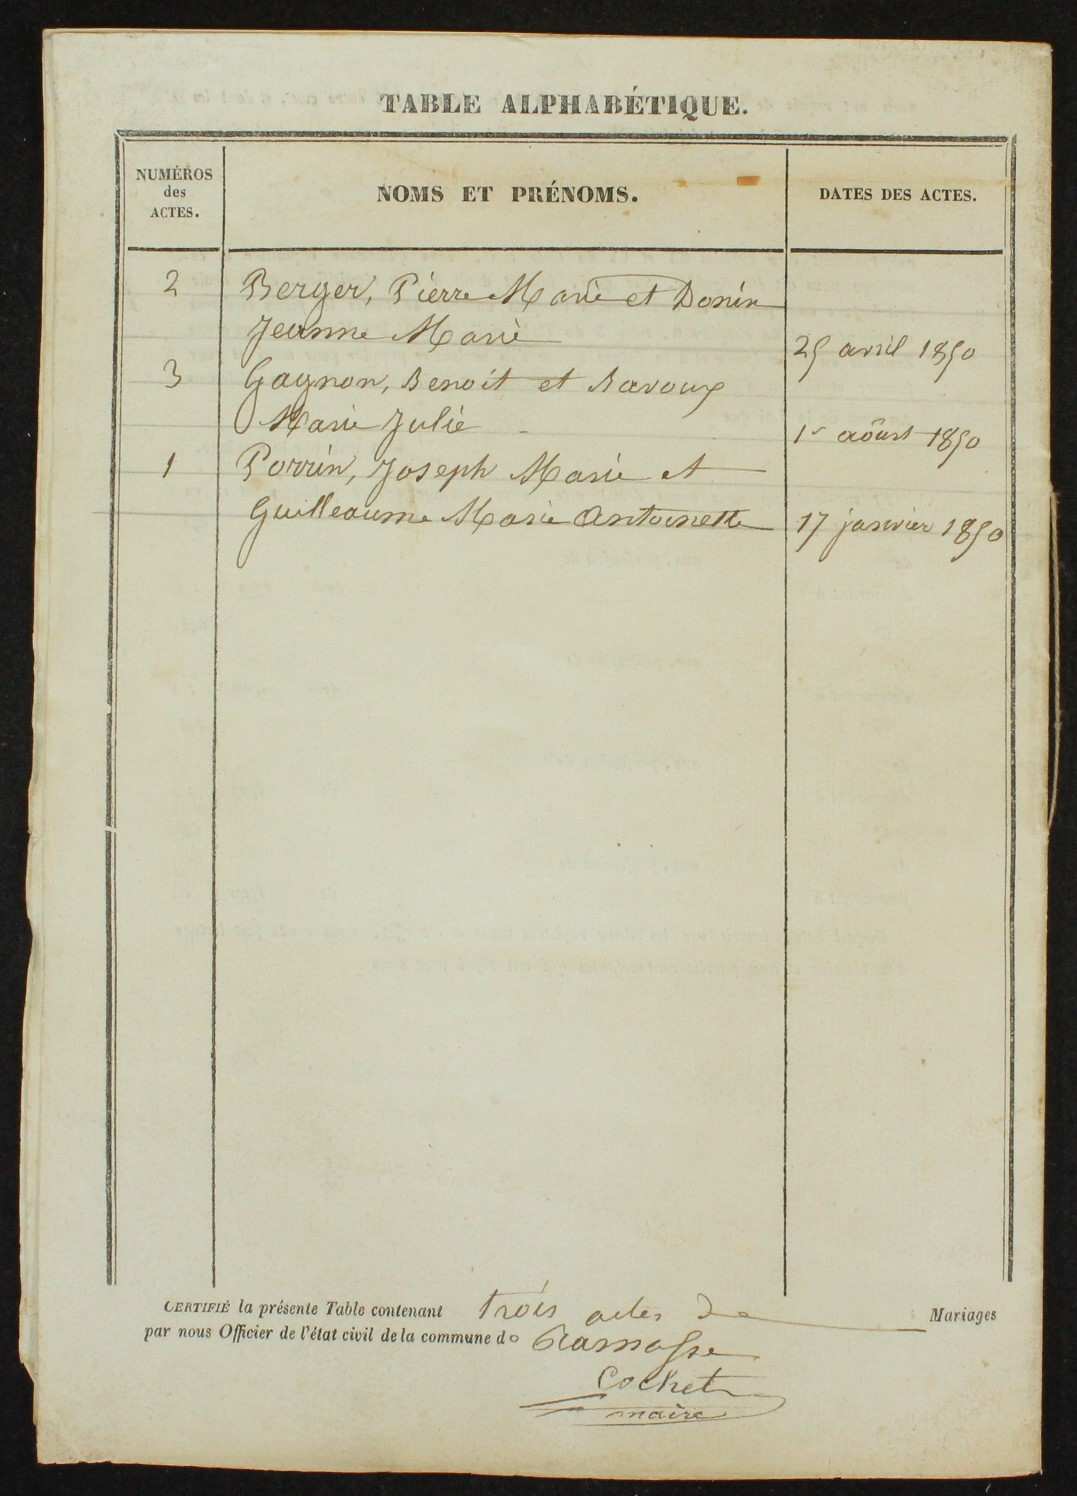 TABLE ALPHABÉTIQUE.
NUMÉROS
des
ACTES.
NOMS ET PRÉNOMS.
DATES DES ACTES.
2 Berger, Pierre Marie et Donin
Jeanne Marie 25 avril 1850
3 Gagnon, Benoit et Bavoux
Marie Julie 1er août 1850
1 Perrin, Joseph Marie et
Guilleaume Marie Antoinette 17 janvier 1850
CERTIFIÉ la présente Table contenant trois actes de Mariages
par nous Officier de l'état civil de la commune de Ramasse
Cochet
maire